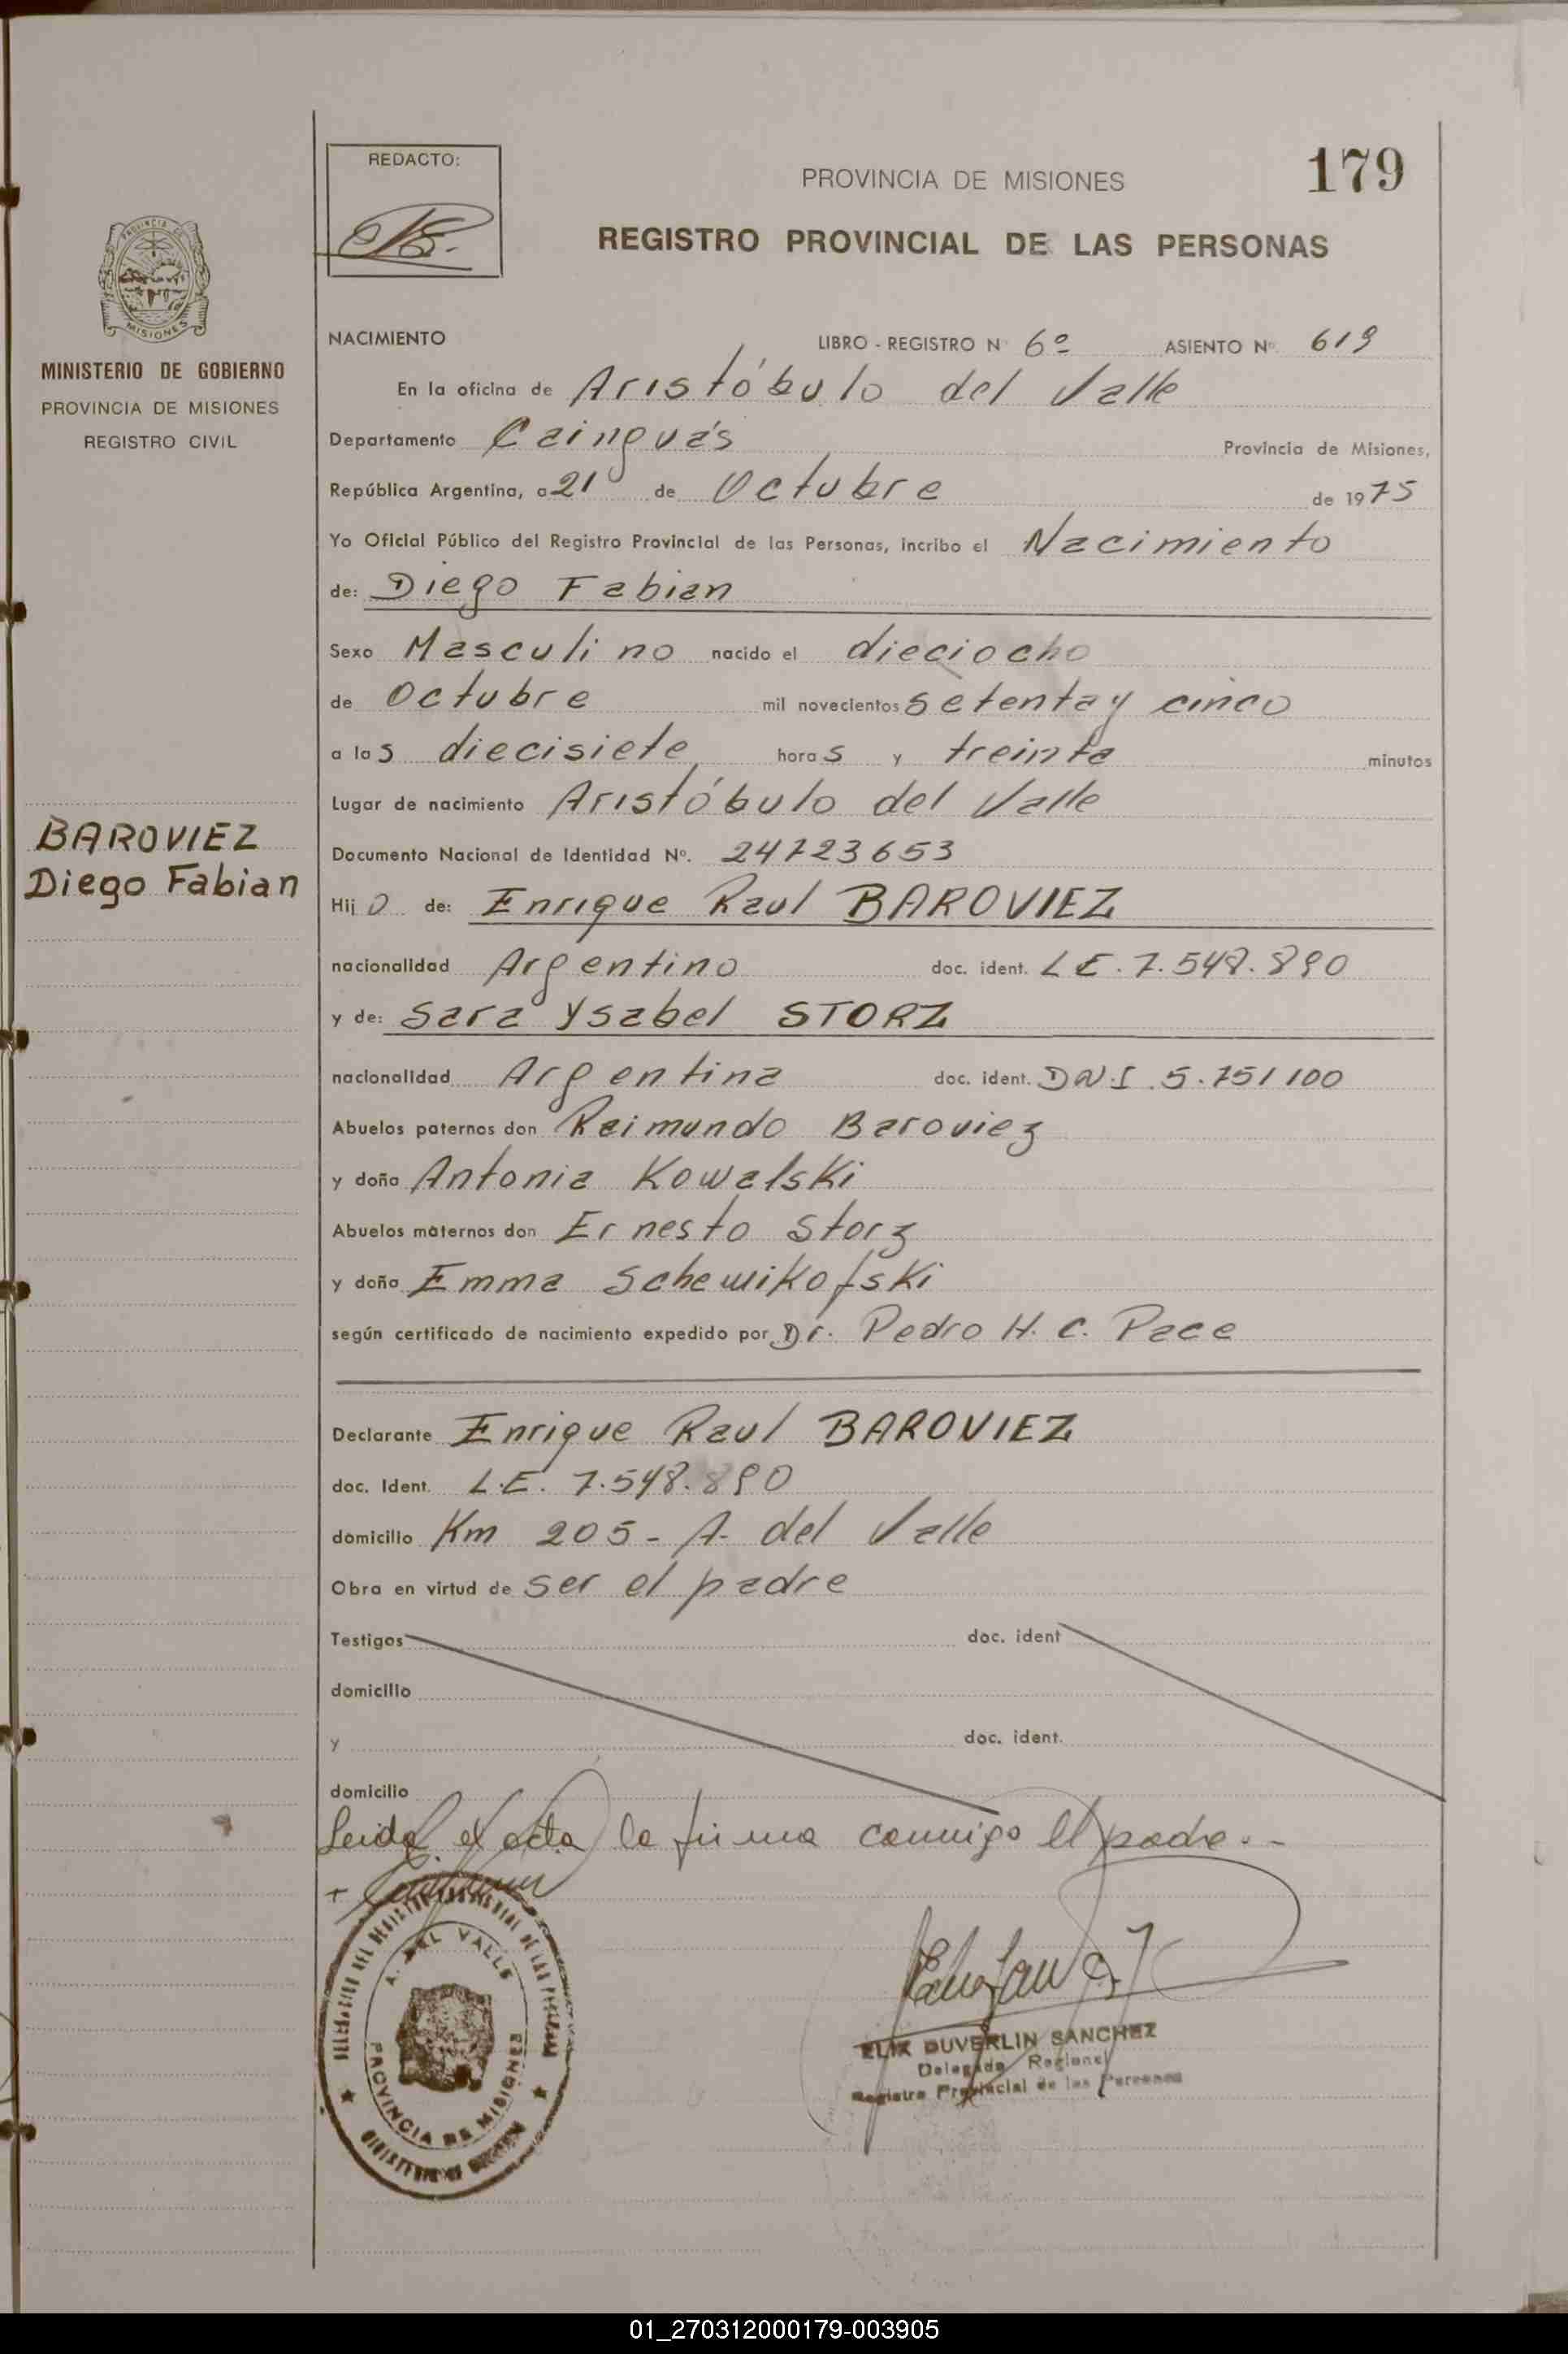 REDACTO:
PROVINCIA DE MISIONES
179
REGISTRO PROVINCIAL DE LAS PERSONAS
PROVINCIA DE
MISIONES
MINISTERIO DE GOBIERNO
PROVINCIA DE MISIONES
REGISTRO CIVIL
NACIMIENTO LIBRO - REGISTRO N° 6º ASIENTO Nº 619
En la oficina de Aristóbulo del Valle
Departamento Cainguás Provincia de Misiones,
República Argentina, a 21 de Octubre de 1975
Yo Oficial Público del Registro Provincial de las Personas, incribo el Nacimiento
de: Diego Fabian
Sexo Masculino nacido el dieciocho
de Octubre mil novecientos setenta y cinco
a las diecisiete horas y treinta minutos
Lugar de nacimiento Aristóbulo del Valle
BAROVIEZ
Diego Fabian
Documento Nacional de Identidad Nº. 24723653
Hijo de: Enrique Raul BAROVIEZ
nacionalidad Argentino doc. ident. L E. 7.548.890
y de: Sara Ysabel STORZ
nacionalidad Argentina doc. ident. DN.I 5.751100
Abuelos paternos don Raimundo Baroviez
y doña Antonia Kowalski
Abuelos maternos don Ernesto Storz
y doña Emma Schewikofski
según certificado de nacimiento expedido por Dr. Pedro H. C. Pace
Declarante Enrique Raul BAROVIEZ
doc. Ident. L.E. 7.548.890
domicilio Km 205 - A. del Valle
Obra en virtud de ser el padre
Testigos doc. ident
domicilio
y doc. ident.
domicilio
Leida el acta la firma conmigo el padre.-
A. DEL VALLE
PROVINCIA DE MISIONES
DUVERLIN SANCHEZ
Delegada Regional
Registro Provincial de las Personas
01_270312000179-003905